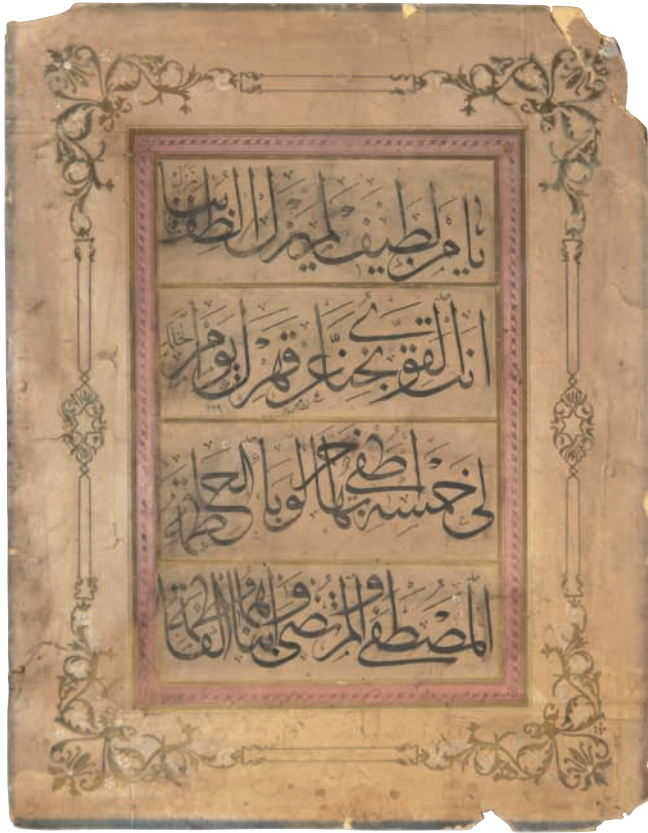 يا من لطيف لم يزل الطف بنا نزل
انك القوي نجنا عن قهرك يوم الخلل
لي خمسة اطفي بها حر الوباء الحاطمة
المصطفى والمرتضى وابناهما والفاطمة